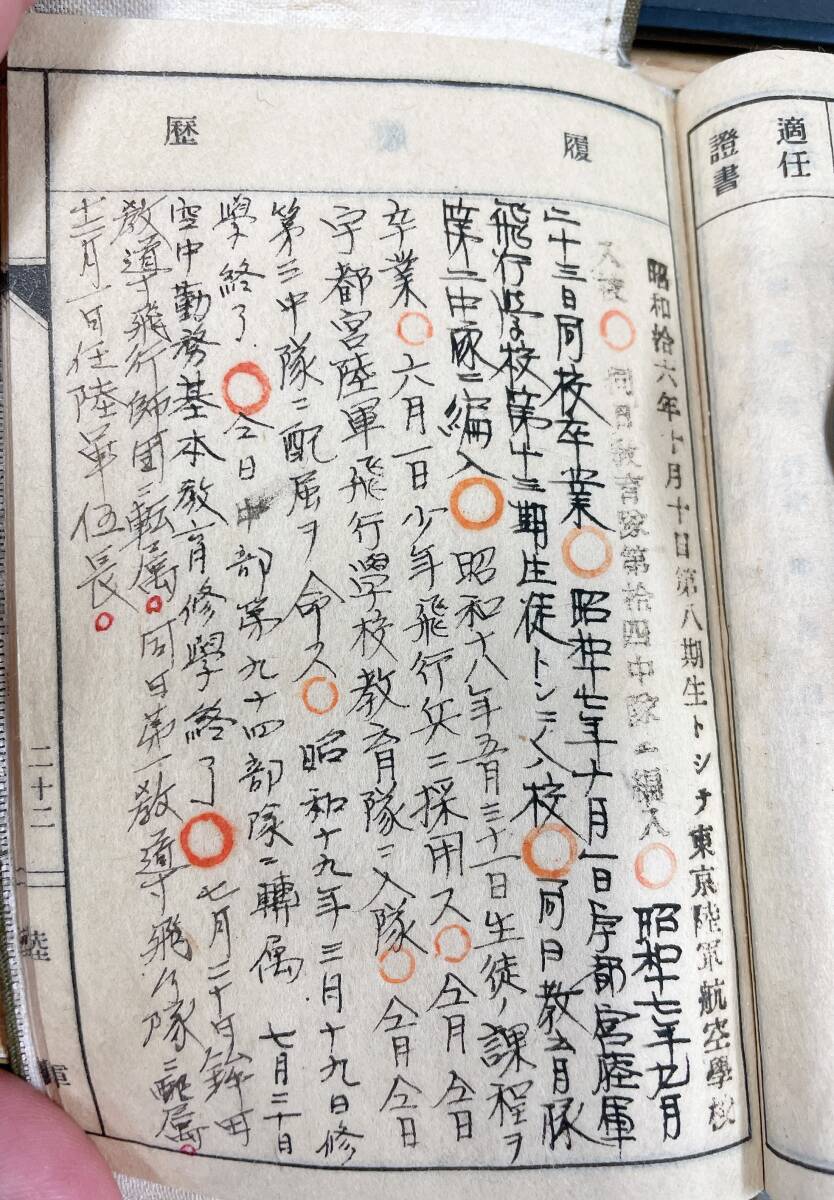 適任
證書
履歷
昭和拾六年十月十日第八期生トシテ東京陸軍航空學校
入校 同日教育隊第拾四中隊ニ編入 昭和十七年九月
二十三日同校卒業 昭和十七年十月一日宇都宮陸軍
飛行学校第十三期生徒トシテ入校 同日教育隊
第二中隊ニ編入 昭和十八年五月三十一日生徒ノ課程ヲ
卒業 六月一日少年飛行兵ニ採用ス 仝月仝日
宇都宮陸軍飛行學校教育隊ニ入隊 仝月仝日
第三中隊ニ配属ヲ命ス 昭和十九年三月十九日修
學終了 仝日中部第九十四部隊ニ轉属 七月二十日
空中勤務基本教育修學終了 七月二十日鉾田
教導飛行師團ニ転属 同日第一教導飛行隊ニ配属
十二月一日任陸軍伍長
二十二
陸軍